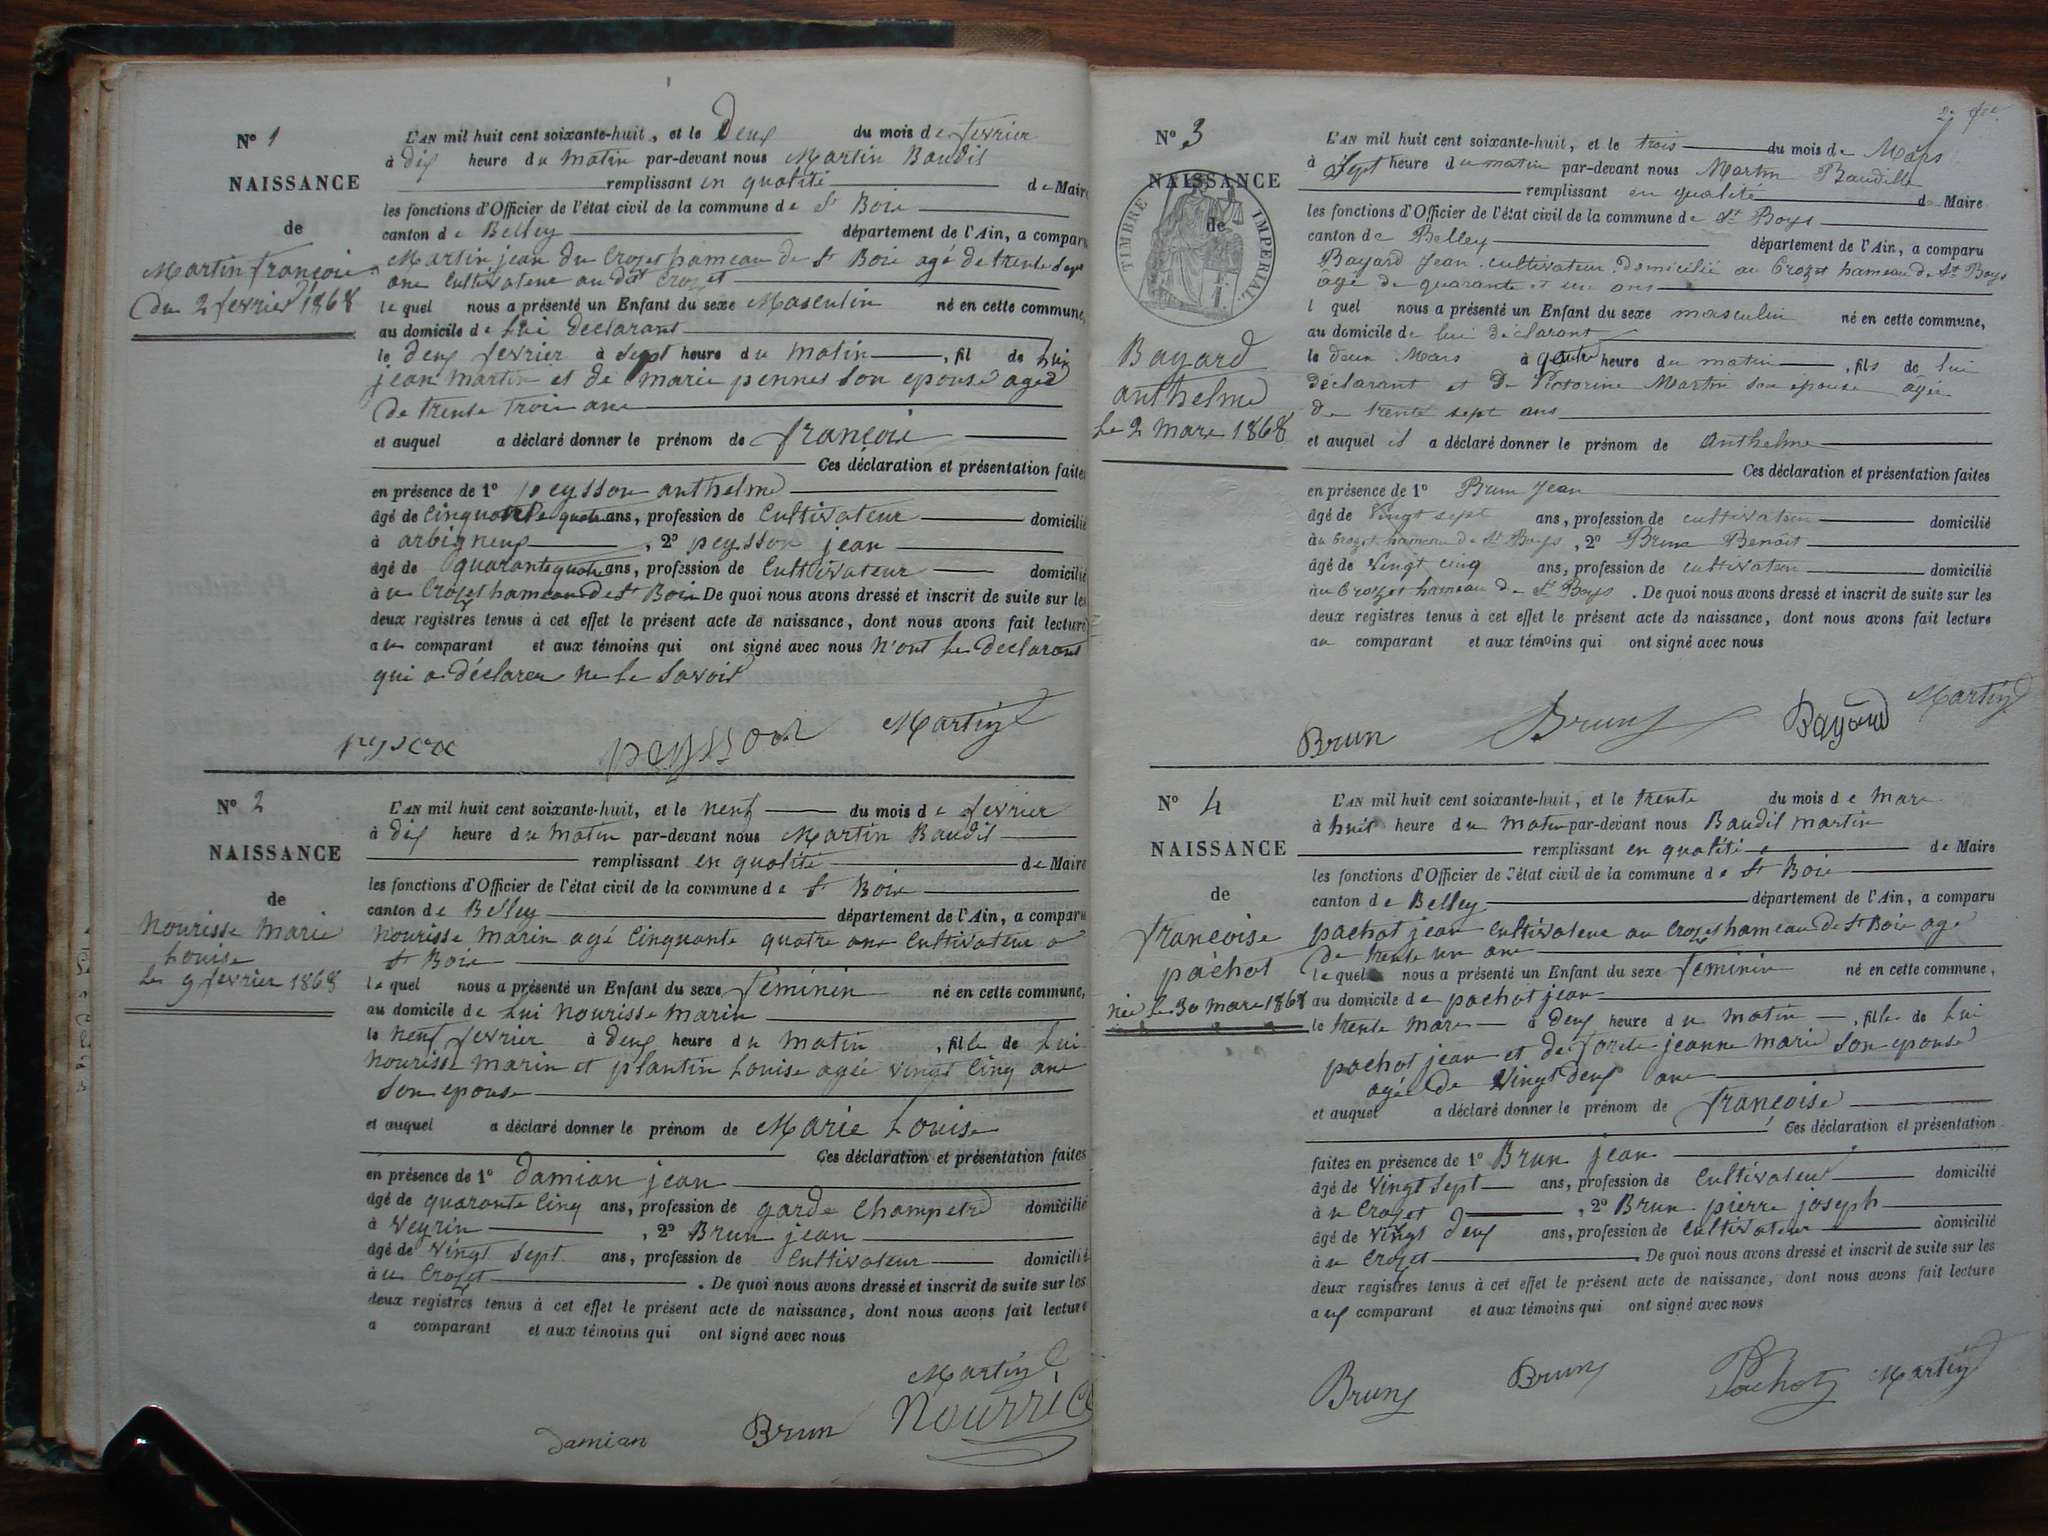 N° 1
NAISSANCE
de
Martin françois
du 2 fevrier 1868
L'AN mil huit cent soixante-huit, et le Deux du mois de fevrier
à dix heure du matin par-devant nous Martin Baudil
remplissant en qualité de Maire
les fonctions d'Officier de l'état civil de la commune de St Bois
canton de Belley département de l'Ain, a comparu
Martin jean du Crozet hameau de St Bois agé de trente sept
ans Cultivateur au dit Crozet
le quel nous a présenté un Enfant du sexe Masculin né en cette commune,
au domicile de Lui declarant
le deux fevrier à Sept heure du matin, fil de Lui
jean martin et de marie pennes Son epouse ageé
de trente trois ans
et auquel a déclaré donner le prénom de françois
Ces déclaration et présentation faites
en présence de 1° peysson anthelme
âgé de Cinquante quatre ans, profession de Cultivateur domicilié
à arbignieux, 2° peysson jean
âgé de quarante quatre ans, profession de Cultivateur domicilié
à u Crozet hameau de St Bois De quoi nous avons dressé et inscrit de suite sur les
deux registres tenus à cet effet le présent acte de naissance, dont nous avons fait lecture
au comparant et aux témoins qui ont signé avec nous n'ont Le declarant
qui a déclarer ne Le Savoir
peysson Martin
N° 2
NAISSANCE
de
Nourisse marie
Louise
Le 9 fevrier 1868
L'AN mil huit cent soixante-huit, et le neuf du mois de fevrier
à dix heure du matin par-devant nous Martin Baudil
remplissant en qualité de Maire
les fonctions d'Officier de l'état civil de la commune de St Bois
canton de Belley département de l'Ain, a comparu
Nourisse marin agé Cinquante quatre ans Cultivateur a
St Bois
le quel nous a présenté un Enfant du sexe féminin né en cette commune,
au domicile de Lui Nourisse marin
le neuf fevrier à deux heure du matin, fille de Lui
Nourisse marin et plantin Louise ageé vingt Cinq ans
Son epouse
et auquel a déclaré donner le prénom de Marie Louise
Ces déclaration et présentation faites
en présence de 1° damian jean
âgé de quarante Cinq ans, profession de garde Champetre domicilié
à Veyrin, 2° Brun jean
âgé de vingt Sept ans, profession de Cultivateur domicilié
à u Crozet. De quoi nous avons dressé et inscrit de suite sur les
deux registres tenus à cet effet le présent acte de naissance, dont nous avons fait lecture
a comparant et aux témoins qui ont signé avec nous
Martin
damian Brun Nourrice
N° 3
NAISSANCE
de
TIMBRE IMPERIAL
Bayard
anthelme
Le 2 mars 1868
L'AN mil huit cent soixante-huit, et le trois du mois de Mars
à Sept heure du matin par-devant nous Martin Baudille
remplissant en qualité de Maire
les fonctions d'Officier de l'état civil de la commune de St Boys
canton de Belley département de l'Ain, a comparu
Bayard Jean cultivateur domicilié au Crozet hameau de St Boys
âgé de quarante et un ans
l quel nous a présenté un Enfant du sexe masculin né en cette commune,
au domicile de lui déclarant
le deux Mars à quatre heure du matin, fils de lui
déclarant et de Victorine Martin son épouse âgée
de trente sept ans
et auquel il a déclaré donner le prénom de anthelme
Ces déclaration et présentation faites
en présence de 1° Brun Jean
âgé de vingt sept ans, profession de cultivateur domicilié
au Crozet hameau de St Boys, 2° Brun Benoit
âgé de vingt cinq ans, profession de cultivateur domicilié
au Crozet hameau de St Boys. De quoi nous avons dressé et inscrit de suite sur les
deux registres tenus à cet effet le présent acte de naissance, dont nous avons fait lecture
au comparant et aux témoins qui ont signé avec nous
Brun Brun Bayard Martin
N° 4
NAISSANCE
de
françoise
pachot
née Le 30 mars 1868
L'AN mil huit cent soixante-huit, et le trente du mois de mars
à huit heure du matin par-devant nous Baudil martin
remplissant en qualité de Maire
les fonctions d'Officier de l'état civil de la commune de St Bois
canton de Belley département de l'Ain, a comparu
pachot jean Cultivateur au Crozet hameau de St Bois agé
de trente un ans
le quel nous a présenté un Enfant du sexe feminin né en cette commune,
au domicile de pachot jean
le trente mars à deux heure du matin, fille de Lui
pachot jean et de jeanne marie Son epouse
ageé de vingt deux ans
et auquel a déclaré donner le prénom de françoise
Ces déclaration et présentation
faites en présence de 1° Brun jean
âgé de vingt Sept ans, profession de Cultivateur domicilié
à u Crozet, 2° Brun pierre joseph
âgé de vingt deux ans, profession de Cultivateur domicilié
à u Crozet. De quoi nous avons dressé et inscrit de suite sur les
deux registres tenus à cet effet le présent acte de naissance, dont nous avons fait lecture
aux comparant et aux témoins qui ont signé avec nous
Brun Brun Pachot Martin